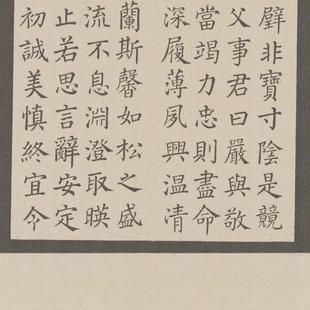 璧非寶寸陰是競
父事君曰嚴與敬
當竭力忠則盡命
深履薄夙興温凊
蘭斯馨如松之盛
流不息淵澄取暎
止若思言辭安定
初誠美慎終宜令